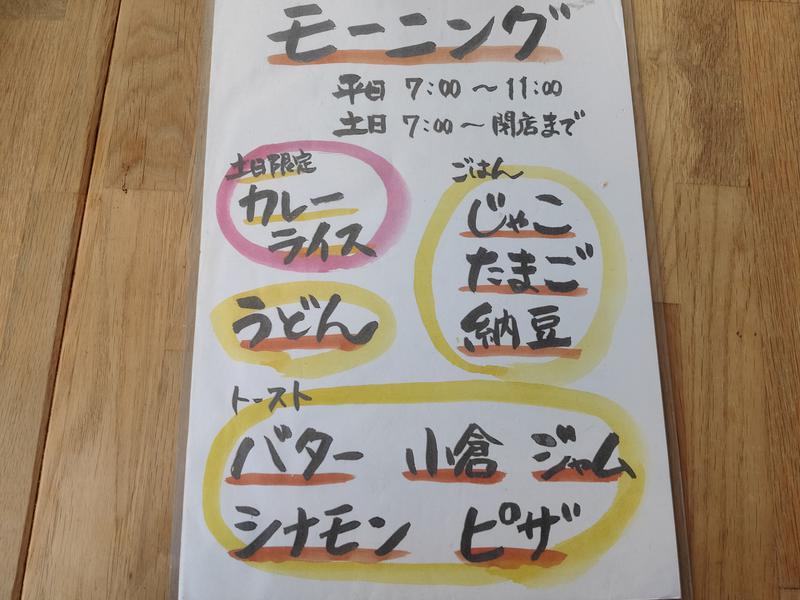 モーニング
平日 7:00 〜 11:00
土日 7:00 〜 閉店まで
土日限定
カレー
ライス
うどん
ごはん
じゃこ
たまご
納豆
トースト
バター 小倉 ジャム
シナモン ピザ